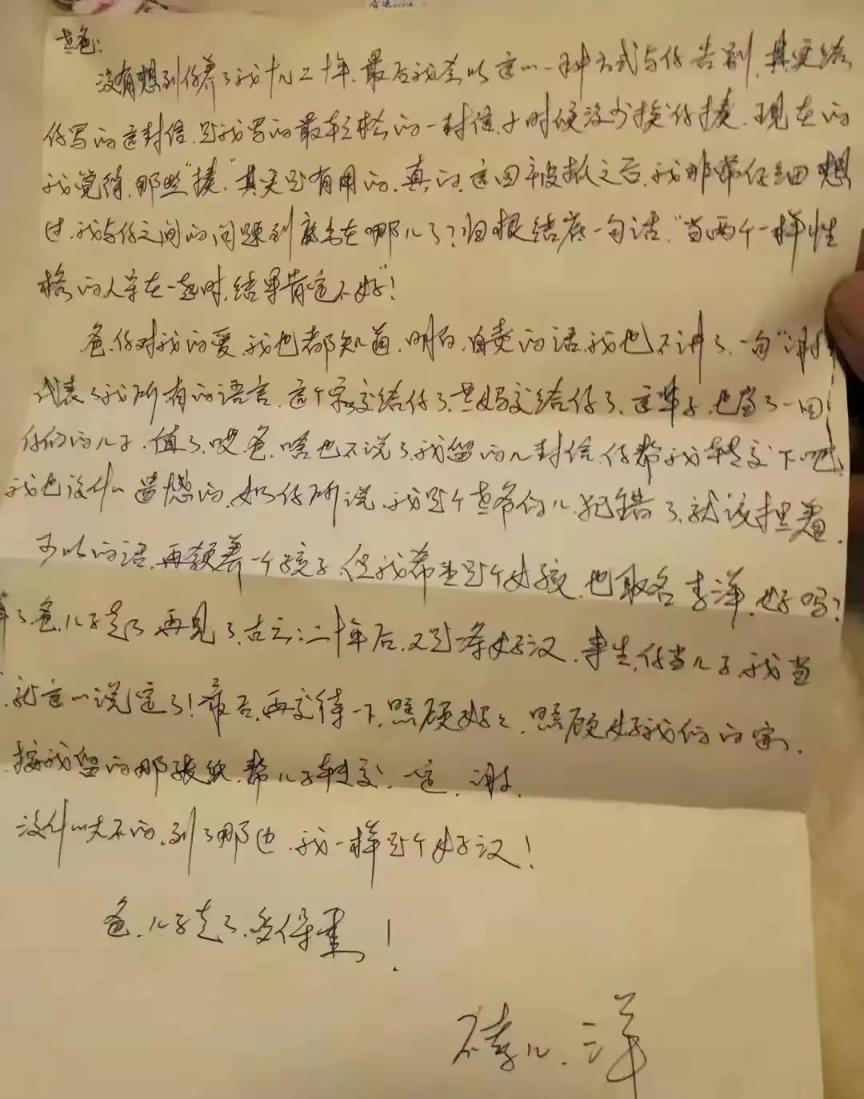 老爸:
没有想到你养了我十九二十年,最后我会以这么一种方式与你告别,其实给
你写的这封信,是我写的最轻松的一封信,小时候没少挨你揍,现在的
我觉得,那些“揍”其实是有用的,真的,这回被抓之后,我非常仔细想
过,我与你之间的问题到底出在哪儿了?归根结底一句话,“当两个一样性
格的人在一起时,结果肯定不好”!
爸,你对我的爱,我也都知道,明白,自责的话,我也不讲了,一句“谢谢
代表了我所有的语言,这个家交给你了,老妈交给你了,这辈子,也当了一回
你们的儿子,值了,哎,爸,啥也不说了,我留的几封信,你帮我转交下吧,
我也没什么遗憾的,如你所说,我是个老爷们儿,犯错了,就该担着,
可以的话,再领养一个孩子,但我希望是个女孩,也取名李洋,好吗?
了,爸,儿子走了,再见了,古云:二十年后,又是条好汉,来生,你当儿子,我当
就这么说定了!最后,再交待一下,照顾好 照顾好我们的家,
按我留的那张纸,帮儿子转交,一定,谢,
没什么大不的,到了那边,我一样是个好汉!
爸,儿子走了,多保重!
不孝儿,洋